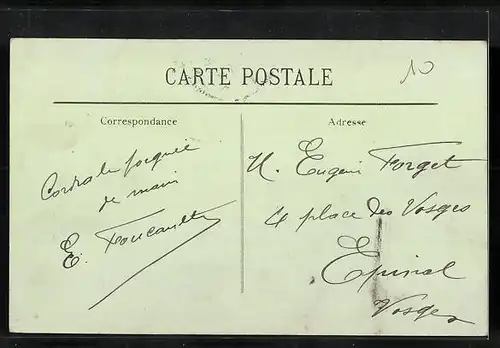 CARTE POSTALE
10
Correspondance
Cordiale poignée
de main
E. Foucault
Adresse
M. Eugène Forget
4 place des Vosges
Epinal
Vosges